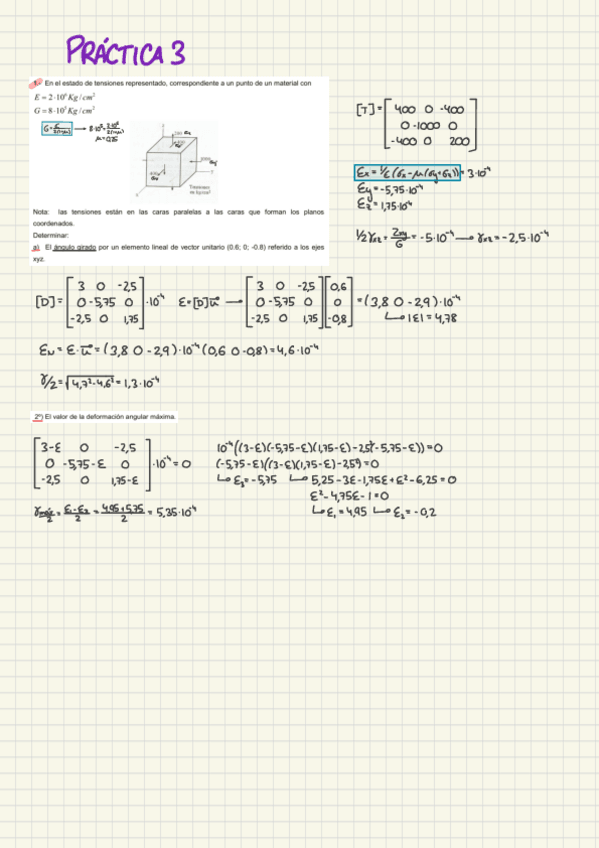 PRÁCTICA 3
1.- En el estado de tensiones representado, correspondiente a un punto de un material con
E = 2·10⁶ Kg/cm²
G = 8·10⁵ Kg/cm²
G = E/2(1+μ) → 8·10⁵ = 2·10⁶/2(1+μ)
μ = 0,25
Tensiones
en kg/cm²
Nota: las tensiones están en las caras paralelas a las caras que forman los planos
coordenados.
Determinar:
a) El ángulo girado por un elemento lineal de vector unitario (0.6; 0; -0.8) referido a los ejes
xyz.
[T] = [400 0 -400
0 -1000 0
-400 0 200]
εx = 1/E (σx - μ(σy+σz)) = 3·10⁻⁴
εy = -5,75·10⁻⁴
εz = 1,75·10⁻⁴
1/2 γxz = = -5·10⁻⁴ → γxz = -2,5·10⁻⁴
[D] = [3 0 -2,5
0 -5,75 0
-2,5 0 1,75] ·10⁻⁴ ε = [D]ū → [3 0 -2,5
0 -5,75 0
-2,5 0 1,75] [0,6
0
-0,8] = (3,8 0 -2,9)·10⁻⁴
↳ |ε| = 4,78
εN = ε·ū = (3,8 0 -2,9)·10⁻⁴ (0,6 0 -0,8) = 4,6·10⁻⁴
γ/2 = √4,7²-4,6² = 1,3·10⁻⁴
2º) El valor de la deformación angular máxima.
[3-ε 0 -2,5
0 -5,75-ε 0
-2,5 0 1,75-ε] ·10⁻⁴ = 0
γmáx/2 = ε₁-ε₃/2 = 4,95+5,75/2 = 5,35·10⁻⁴
10⁻⁴((3-ε)(-5,75-ε)(1,75-ε)-2,5²(-5,75-ε)) = 0
(-5,75-ε)((3-ε)(1,75-ε)-2,5²) = 0
↳ ε₃ = -5,75 ↳ 5,25-3ε-1,75ε+ε²-6,25 = 0
ε²-4,75ε-1 = 0
↳ ε₁ = 4,95 ↳ ε₂ = -0,2